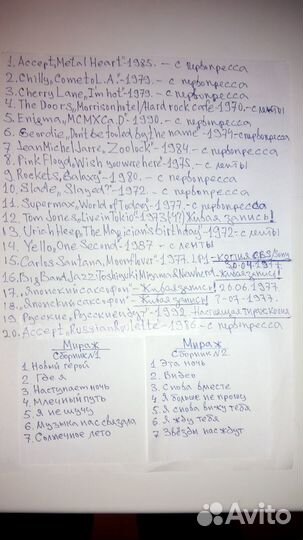 1. Accept „Metal Heart"-1985. – с первопресса
2. Chilly „Come to L.A."-1979. – с первопресса
3. Cherry Lane „I'm hot"-1979. – с первопресса
4. The Doors „Morrison hotel/Hard rock cafe"-1970.-с ленты
5. Enigma „MCMXC a.D"-1990. – с первопресса
6. Geordie „Don't be fooled by the name"-1974-с первопресса
7. Jean Michel Jarre „Zoolook"-1984. – с первопресса
8. Pink Floyd „Wish you were here"-1975. – с ленты
9. Rockets „Galaxy"-1980. – с первопресса
10. Slade „Slayed?"-1972 – с первопресса
11. Supermax „World of Today"-1977. – с первопресса
12. Tom Jones „Live in Tokio" Живая запись!
13. Uriah Heep „The Magician's birthday"-1972-с ленты
14. Yello „One Second"-1987 – с ленты
15. Carlos Santana „Moonflower"-1977. LP1-копия CBS/Sony
30.04.1977.
16. Big Band Jazz: Toshiyuki Miyama & Newherd-Живая запись!
17. „Японский саксофон"-Живая запись! 20.06.1977
18. „Японский саксофон" – Живая запись! ?-07-1977.
19 Русские „Русские идут"-1992. Настоящая тиражская
20. Accept „Russian Roulette"-1986 – с первопресса
Мираж
Сборник N1
1 Новый герой
2 Где я
3 Наступает ночь
4 Млечный путь
5 Я не шучу
6. Музыка нас связала
7. Солнечное лето
Мираж
Сборник N2
1 Эта ночь
2 Видео
3 Снова вместе
4 Я больше не прошу
5 Я снова вижу тебя
6 Я жду тебя
7 Звёзды нас ждут
Avito